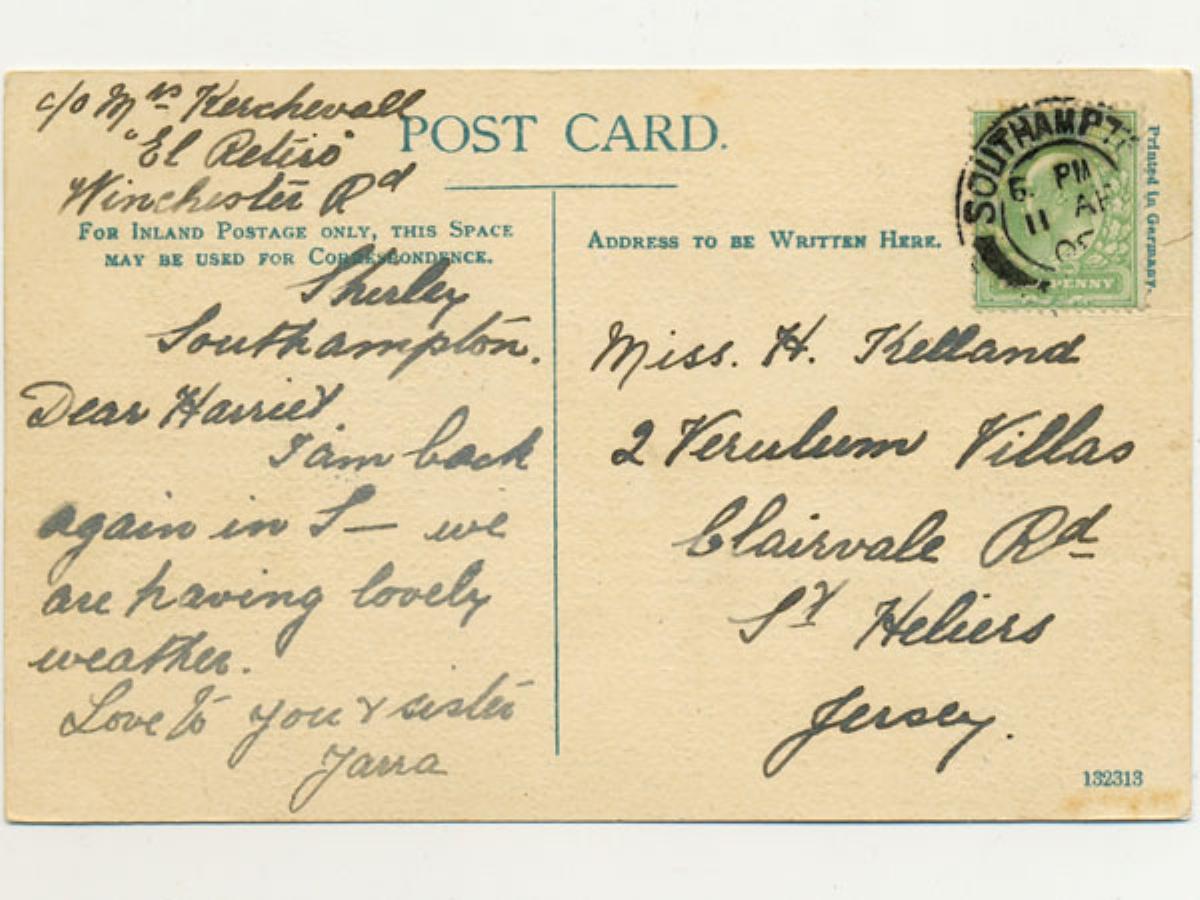 c/o Mrs Kerchevall
"El Retiro"
Winchester Rd
Shirley
Southampton.
Dear Harriet
I am back
again in S— we
are having lovely
weather.
Love to you & sister
POST CARD.
FOR INLAND POSTAGE ONLY, THIS SPACE
MAY BE USED FOR CORRESPONDENCE.
ADDRESS TO BE WRITTEN HERE.
Miss. H. Kelland
2 Verulum Villas
Clairvale Rd
St Heliers
Jersey.
SOUTHAMPT
PM
11 AP
PENNY
Printed in Germany.
132313